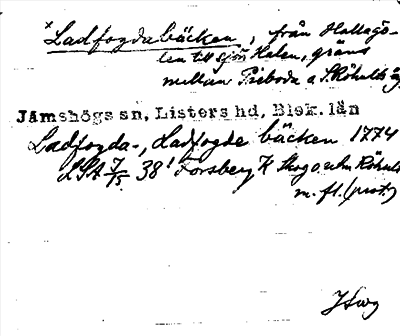 ×Ladfogdabäcken, från Hallagö-
len till sjön Halen, gräns
mellan Priboda o S. Röhult
Jämshögs sn, Listers hd, Blek. län
Ladfogda-, Ladfogde bäcken 1774
LSA 7/5 38¹ Forsberg H Skog o utm Röhult
m. fl. (prot.)